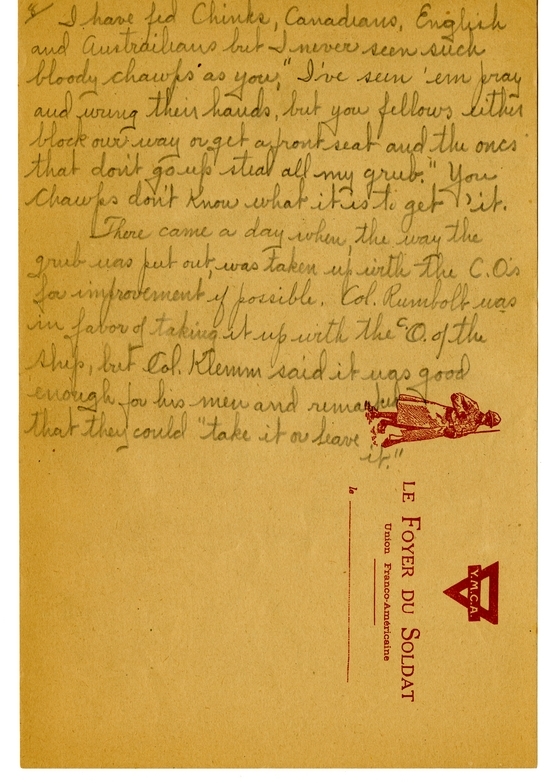 8/ I have fed Chinks, Canadians, English
and Austrailians but I never seen such
bloody chawps as you." I've seen 'em pray
and wring their hands, but you fellows either
block our way or get a front seat and the ones
that don't go up steal all my grub." You
chawps don't know what it is to get 'it.
There came a day when, the way the
grub was put out, was taken up with the C.O's
for improvement, if possible. Col. Rumbolt was
in favor of taking it up with the C.O. of the
ship, but Col. Klemm said it was good
enough for his men and remarked
that they could "take it or leave
it."
Y.M.C.A.
LE FOYER DU SOLDAT
Union Franco-Américaine
le